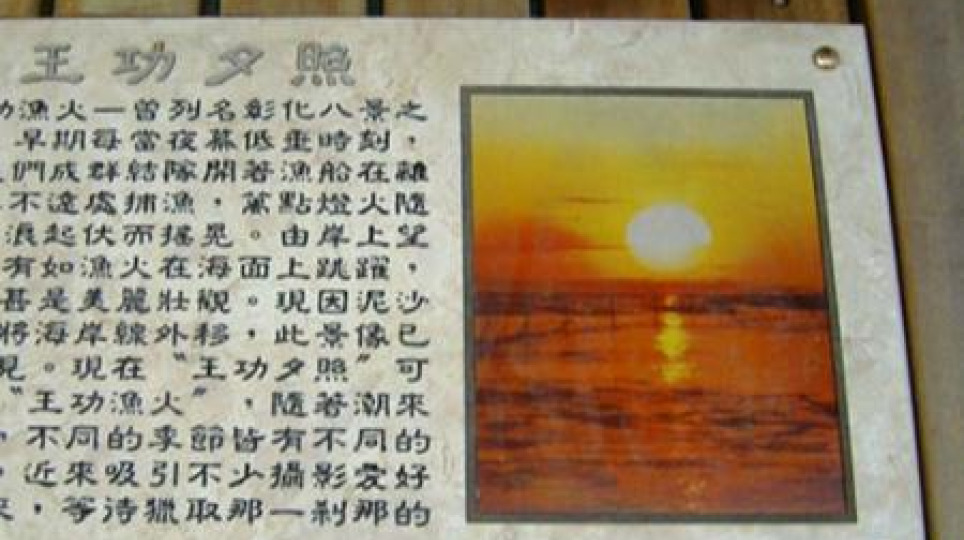 王功夕照
功漁火一曾列名彰化八景之
早期每當夜幕低垂時刻，
們成群結隊開著漁船在離
不遠處捕漁，萬點燈火隨
浪起伏而搖晃。由岸上望
有如漁火在海面上跳躍，
甚是美麗壯觀。現因泥沙
將海岸線外移，此景像已
見。現在“王功夕照”可
“王功漁火”，隨著潮來
，不同的季節皆有不同的
，近來吸引不少攝影愛好
來，等待獵取那一剎那的